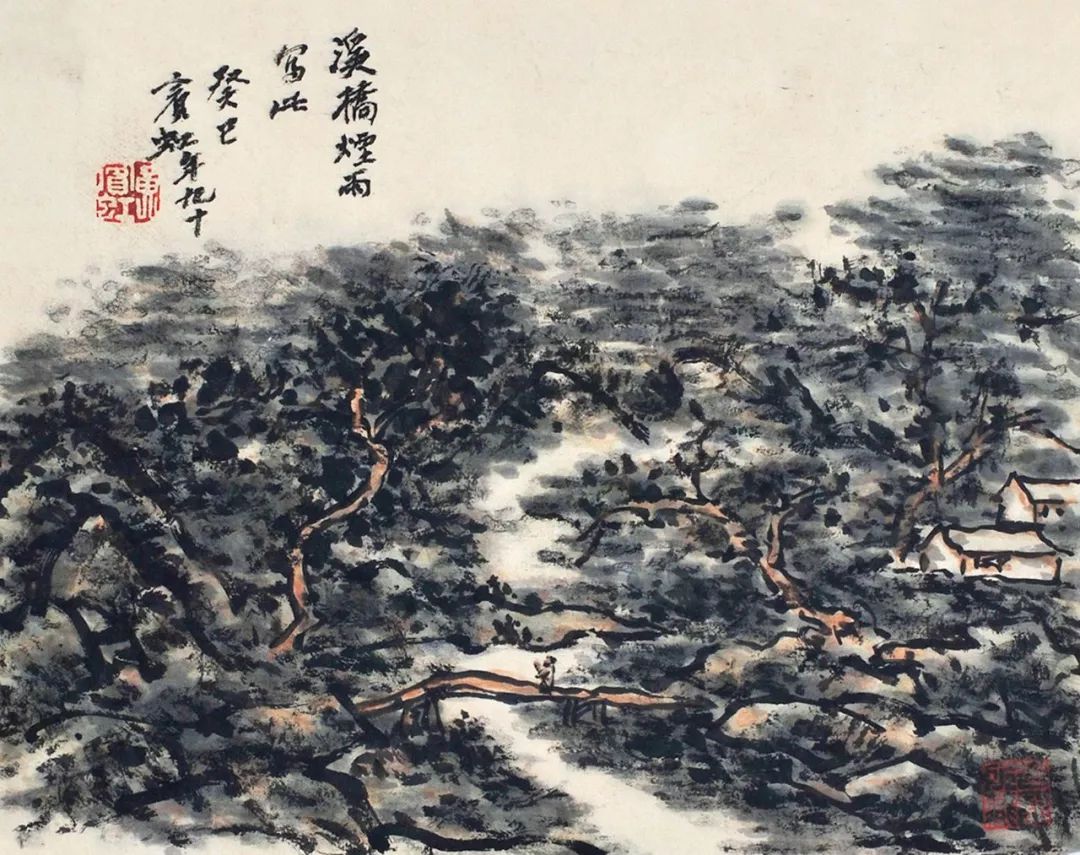 溪橋煙雨
寫此
癸巳
賓虹年九十
黃賓虹